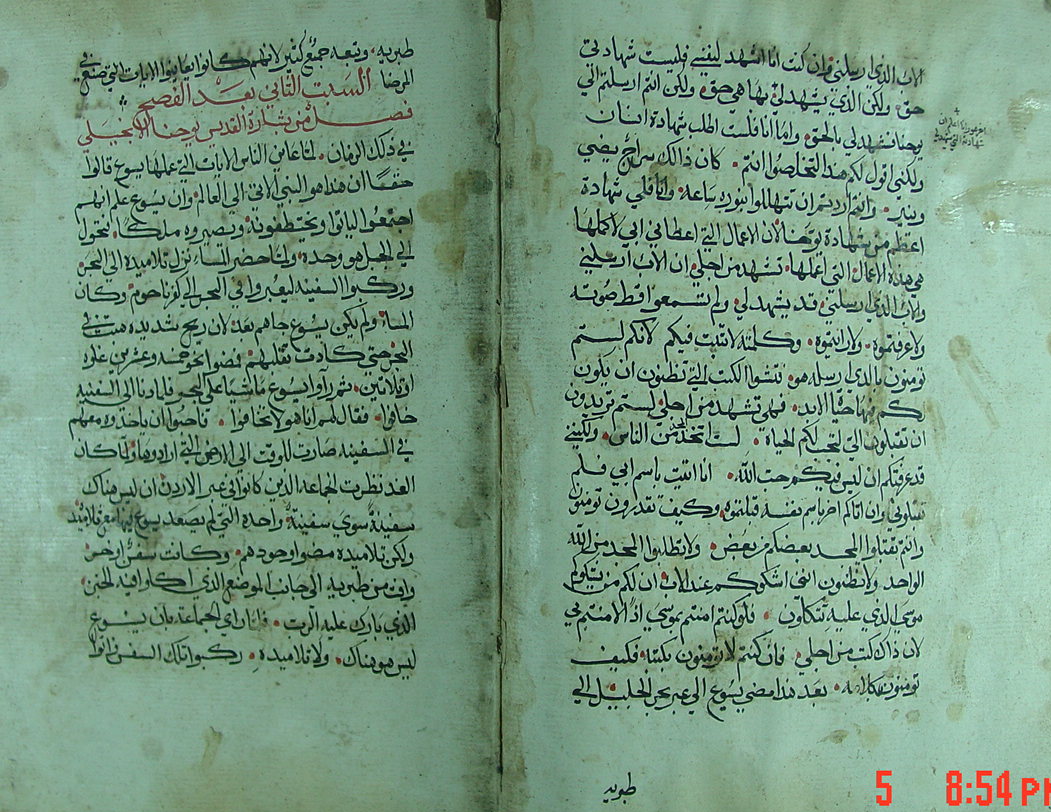 الاب الذي ارسلني فان كنت انا اشهد لنفسي فليست شهادتي
حق ولكن الذي يشهد لي بها هي حق ولكن انتم ارسلتم الي
يوحنا فشهد لي بالحق واما انا فلست اطلب شهادة انسان
ولكني اقول لكم هذا لتخلصوا انتم كان ذالك سراج يضي
وينير وانتم اردتم ان تتهللوا بنوره ساعه وانا فلي شهادة
اعظم من شهادة يوحنا لان الاعمال التي اعطاني ابي لاكملها
هي هذه الاعمال التي اعملها تشهد من اجلي ان الاب ارسلني
والاب الذي ارسلني قد يشهد لي ولم تسمعوا قط صوته
ولا عرفتموه ولا رايتموه وكلمته لا تثبت فيكم لانكم لستم
تومنون بالذي ارسله هو فتشوا الكتب التي تظنون ان يكون
لكم فيها حياة الابد فهي تشهد من اجلي لستم تريدون
ان تقبلون الي لتحيا لكم الحياة لست اتخذ من الناس ولكنني
قد عرفتكم ان ليس فيكم حب الله انا اتيت باسم ابي فلم
تقبلوني وان اتاكم اخر باسم نفسه قبلتموه وكيف تقدرون تومنوا
وانتم تقبلوا المجد بعضكم من بعض ولا تطلبوا المجد من الله
الواحد ولا تظنون انني اشكوكم عند الاب ان لكم من يشكوكم
موسي الذي عليه تتكلون فلو كنتم امنتم بموسي اذًا لامنتم بي
لان ذاك كتب من اجلي فان كنتم لا تومنون بكتبه فكيف
تومنون بكلامه بعد هذا مضي يسوع الي عبر بحر الجليل الي
طبريه
طبريه وتبعه جمع كثير لانهم كانوا يعاينوا الايات التي صنع في
المرضا السبت الثاني بعد الفصح
فصل من بشارة القديس يوحنا الانجيلي
في ذلك الزمان لما عاين الناس الايات التي عملها يسوع قالوا
حقًا ان هذا هو النبي الاتي الي العالم وان يسوع علم انهم
اجتمعوا لياتوا ويختطفونه ويصيروه ملكًا فتحول
الي الجبل هو وحده ولما حضر المساء نزل تلاميذه الي البحر
وركبوا السفينه ليعبروا في البحر الي كفرناحوم وكان
المساء ولم يكن يسوع جاهم بعد لان ريح شديده هبت في
البحر حتي كادت تقلبهم فمضوا نحو خمسه وعشرين غلوه
او ثلاثين ثم راوا يسوع ماشيًا علي البحر فلما دنا الي السفينه
خافوا فقال لهم انا هو لا تخافوا فاحبوا ان ياخذوه معهم
في السفينه صارت للوقت الي الارض التي ارادوها ولما كان
الغد نظرت الجماعه الذين كانوا في عبر الاردن ان ليس هناك
سفينة سوي سفينة واحده التي لم يصعد يسوع فيها مع تلاميذه
ولكن تلاميذه مضوا وحدهم وكانت سفن اخر
وافت من طبريه الي جانب الموضع الذي اكلوا فيه الخبز
الذي بارك عليه الرب فلما راي الجماعة بان يسوع
ليس هو هناك ولا تلاميذه ركبوا تلك السفن واتوا
5 8:54 PM